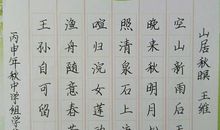 山居秋暝 王维
空山新雨后
晚来秋明月
照清泉石上
喧归浣女莲
渔舟随意春
王孙自可留
丙申年秋中学组学